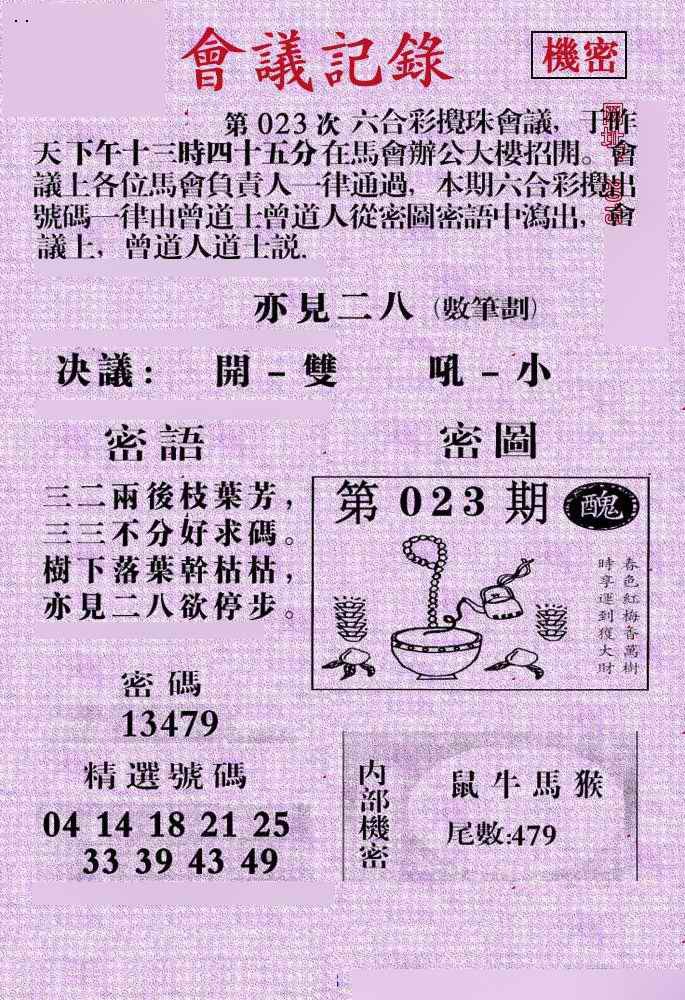 會議記錄
機密
第 023 次 六合彩攪珠會議，于昨
天下午十三時四十五分在馬會辦公大樓招開。會
議上各位馬會負責人一律通過，本期六合彩攪出
號碼一律由曾道士曾道人從密圖密語中瀉出，會
議上，曾道人道士説.
亦見二八（數筆劃）
决議： 開－雙 吼－小
密語
三二兩後枝葉芳，
三三不分好求碼。
樹下落葉幹枯枯，
亦見二八欲停步。
密圖
第 023 期 醜
春色紅梅香萬樹
時享運到獲大財
密碼
13479
精選號碼
04 14 18 21 25
33 39 43 49
内部機密
鼠牛馬猴
尾數:479